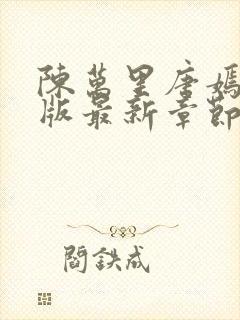 陳萬里唐嫣
版最新章節
閻鉄成